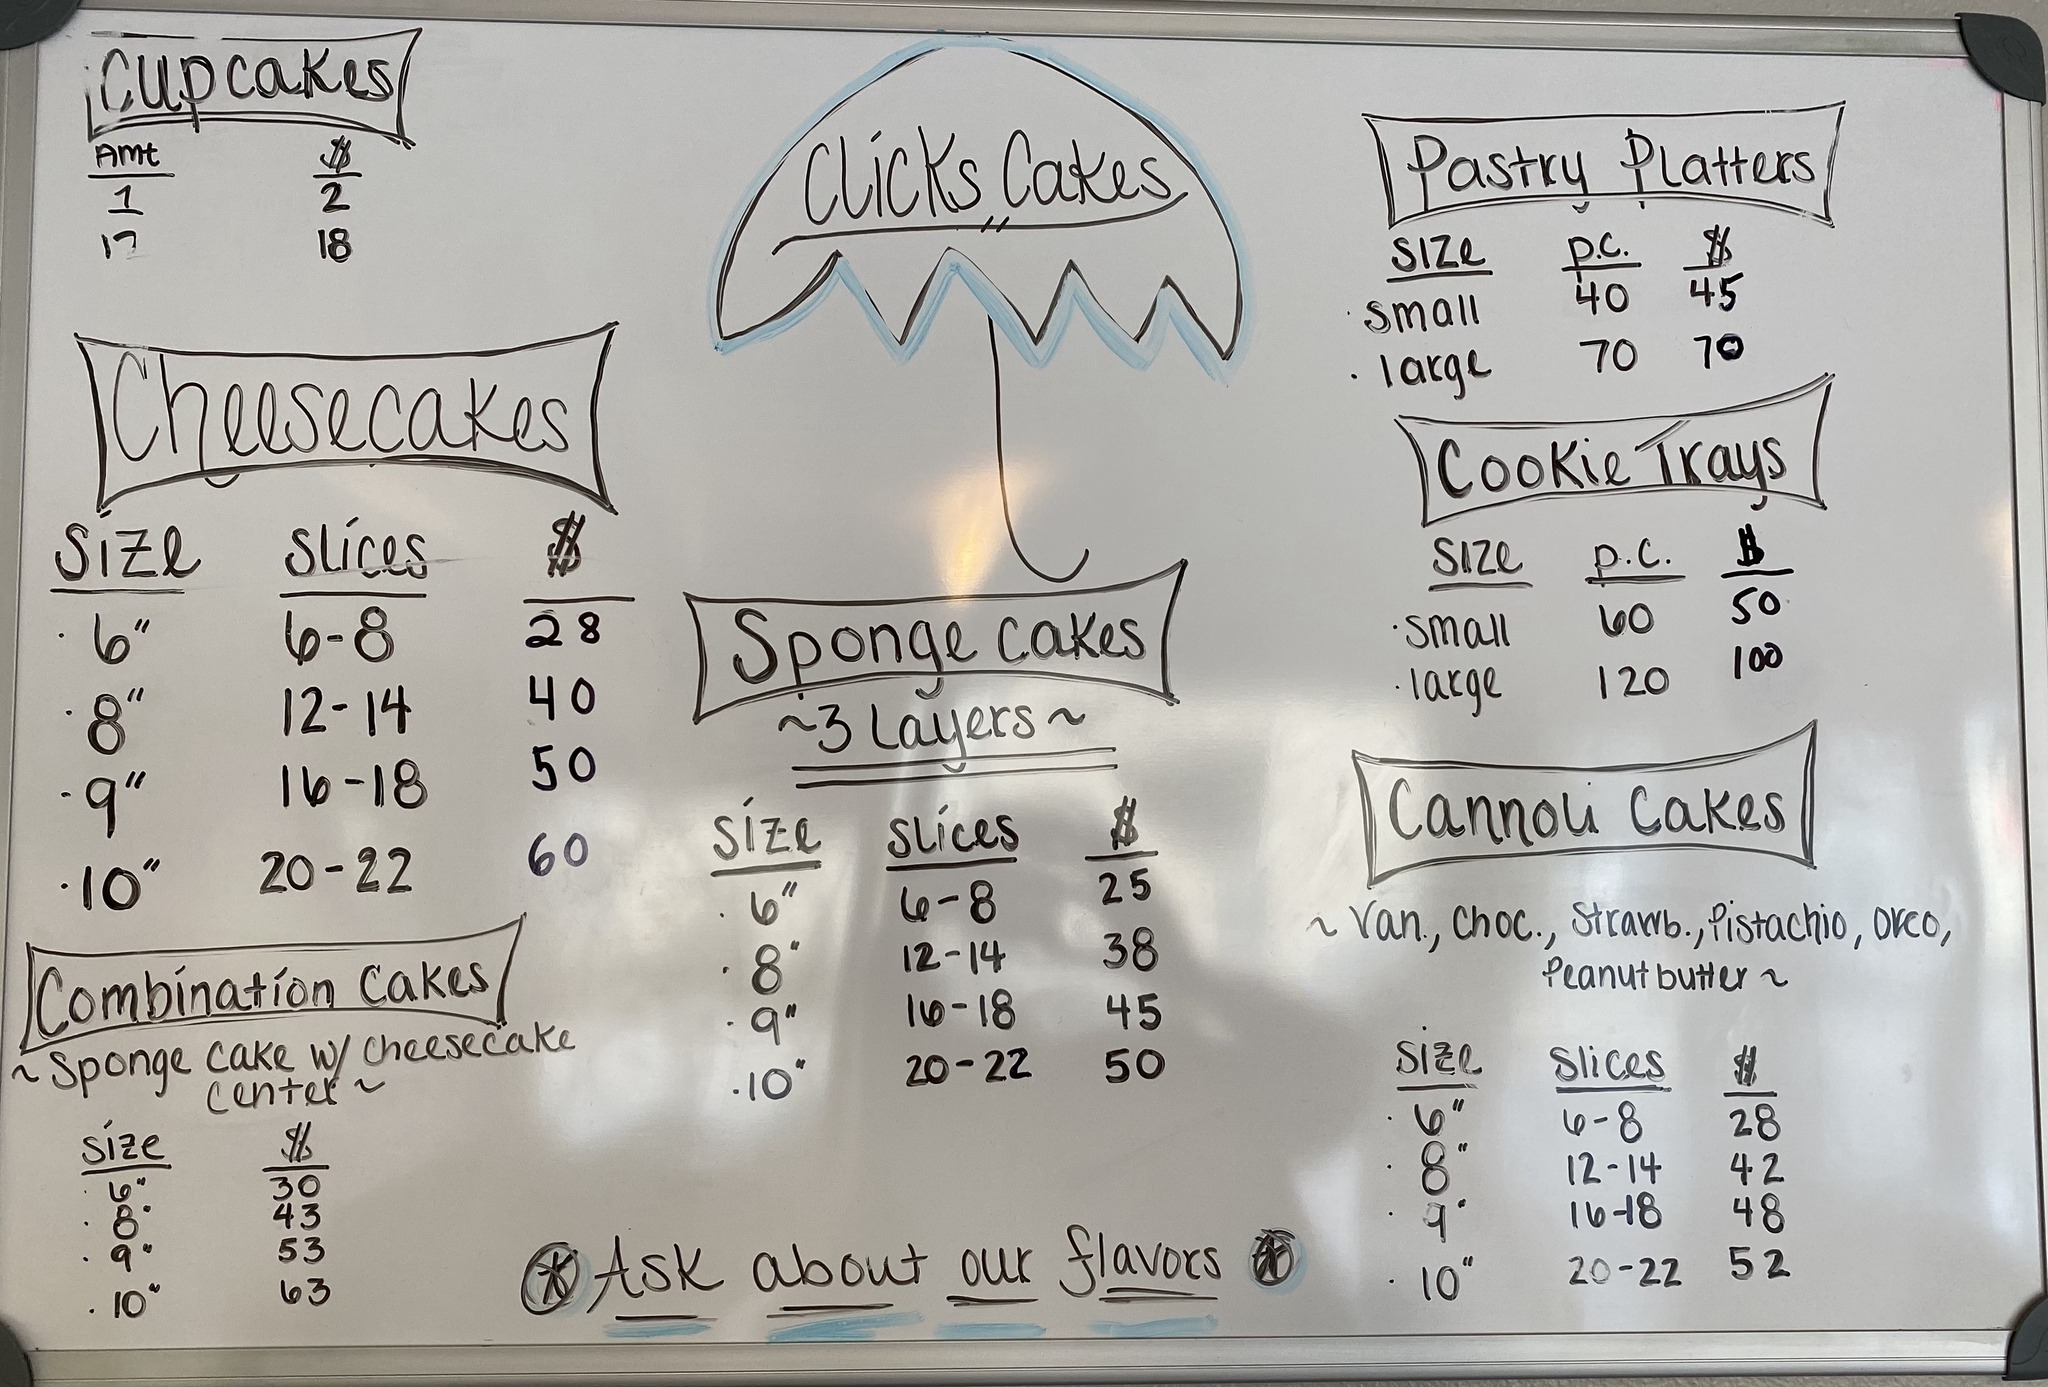 Cupcakes
Amt $
1 2
18
Cheesecakes
Size Slices $
· 6" 6-8 28
· 8" 12-14 40
· 9" 16-18 50
· 10" 20-22 60
Combination Cakes
~ Sponge cake w/ cheesecake
center ~
Size $
· 6" 30
· 8" 43
· 9" 53
· 10" 63
Clicks Cakes
Sponge cakes
~3 Layers~
Size Slices $
· 6" 6-8 25
· 8" 12-14 38
· 9" 16-18 45
· 10" 20-22 50
Pastry Platters
Size p.c. $
· small 40 45
· large 70 70
Cookie Trays
Size p.c. $
· small 60 50
· large 120 100
Cannoli Cakes
~ Van., Choc., Strawb., Pistachio, Oreo,
Peanut butter ~
Size Slices $
· 6" 6-8 28
· 8" 12-14 42
· 9" 16-18 48
· 10" 20-22 52
* Ask about our flavors *